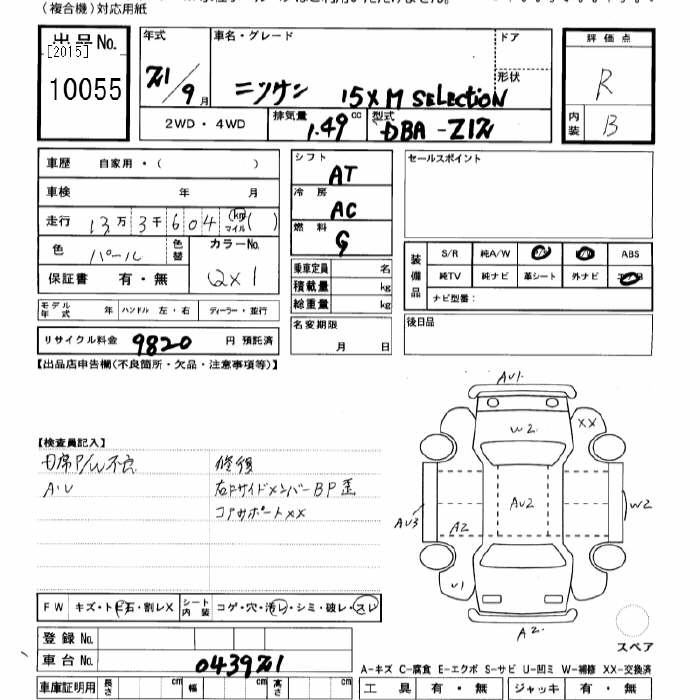 (複合機)対応用紙
出品No.
[2015]
10055
年式
21/9月
車名・グレード
ニッサン 15XM SELECTION
ドア
形状
評価点
R
内装
B
2WD・4WD
排気量
1.49cc
型式
DBA-Z12
車歴 自家用・( )
車検 年 月
走行 13万3千604 (km マイル)( )
色 パール
色替
カラーNo.
QX1
保証書 有・無
モデル年式 年 ハンドル 左・右 ディーラー・並行
リサイクル料金 9820 円 預託済
シフト
AT
冷房
AC
燃料
G
乗車定員 名
積載量 kg
総重量 kg
名変期限
月 日
セールスポイント
装備品
S/R 純A/W P/S P/W ABS
純TV 純ナビ 革シート 外ナビ
ナビ型番:
後日品
【出品店申告欄(不良箇所・欠品・注意事項等)】
【検査員記入】
P/W不良
A・U
修復
右Fサイドメンバー BP歪
コアサポートXX
AU1
W2
XX
AU2
W2
AU3
A2
U1
A2
スペア
FW キズ・トビ石・割レX
シート内装 コゲ・穴・汚レ・シミ・破レ・スレ
登録No.
車台No. 043921
A-キズ C-腐食 E-エクボ S-サビ U-凹ミ W-補修 XX-交換済
車庫証明用 長さ cm 幅 cm 高さ cm
工具 有・無 ジャッキ 有・無